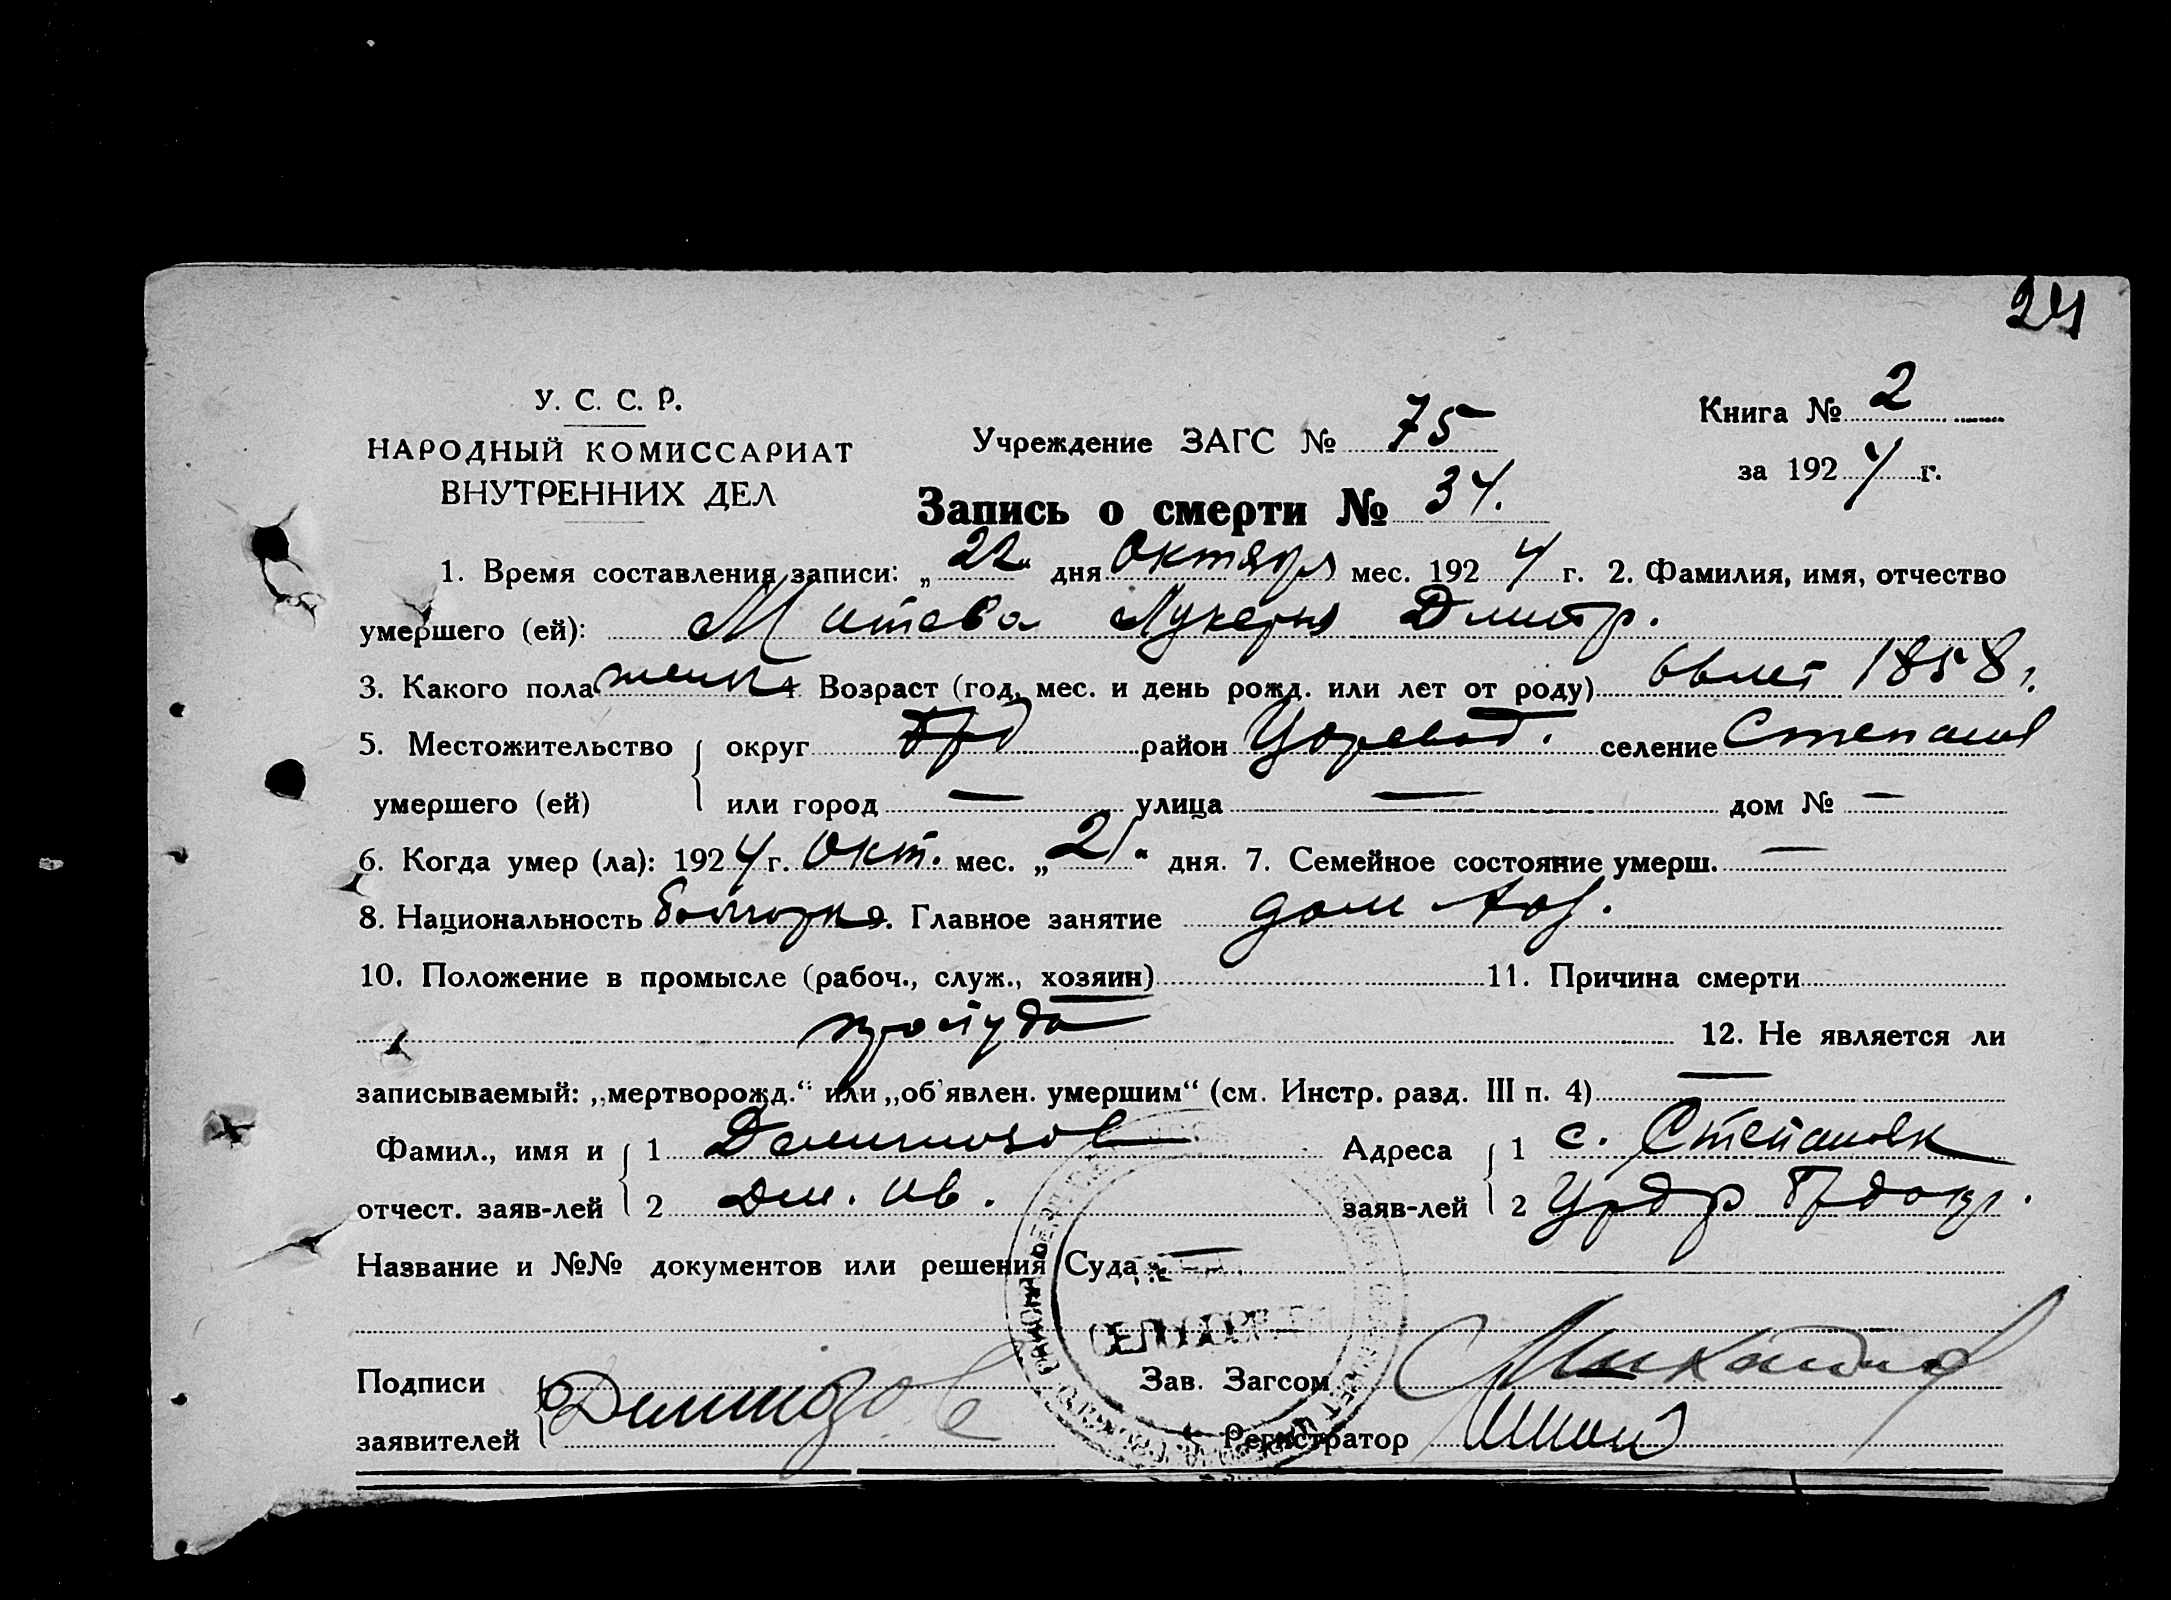 24
У. С. С. Р.
НАРОДНЫЙ КОМИССАРИАТ
ВНУТРЕННИХ ДЕЛ
Учреждение ЗАГС № 75
Книга № 2
за 1924 г.
Запись о смерти № 34.
1. Время составления записи: „22" дня Октября мес. 1924 г. 2. Фамилия, имя, отчество
умершего (ей): Митева Лукерья Дмитр.
3. Какого пола женск. Возраст (год, мес. и день рожд. или лет от роду) 66 лет 1858 г.
5. Местожительство { округ район Царевод. селение Степанов
умершего (ей) или город — улица — дом № —
6. Когда умер (ла): 1924 г. Окт. мес. „21" дня. 7. Семейное состояние умерш. —
8. Национальность болгарка. Главное занятие дом хоз.
10. Положение в промысле (рабоч., служ., хозяин) 11. Причина смерти
простуда 12. Не является ли
записываемый: „мертворожд." или „об'явлен. умершим" (см. Инстр. разд. III п. 4) —
Фамил., имя и { 1 Адреса { 1 с. Степановк
отчест. заяв-лей 2 Дм. Ив. заяв-лей 2
Название и №№ документов или решения Суда —
Подписи { Зав. Загсом
заявителей Регистратор